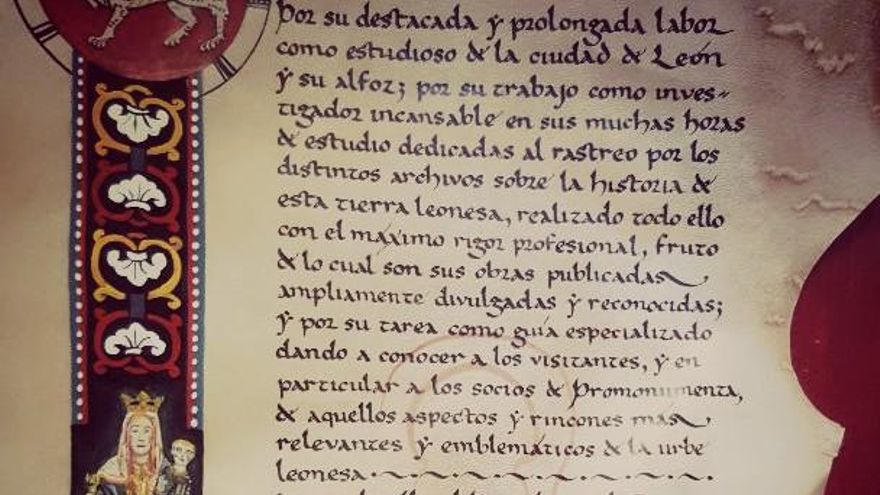 Por su destacada y prolongada labor
como estudioso de la ciudad de León
y su alfoz; por su trabajo como inves-
tigador incansable en sus muchas horas
de estudio dedicadas al rastreo por los
distintos archivos sobre la historia de
esta tierra leonesa, realizado todo ello
con el máximo rigor profesional, fruto
de lo cual son sus obras publicadas
ampliamente divulgadas y reconocidas;
y por su tarea como guía especializado
dando a conocer a los visitantes, y en
particular a los socios de Promonumenta,
de aquellos aspectos y rincones más
relevantes y emblemáticos de la urbe
leonesa